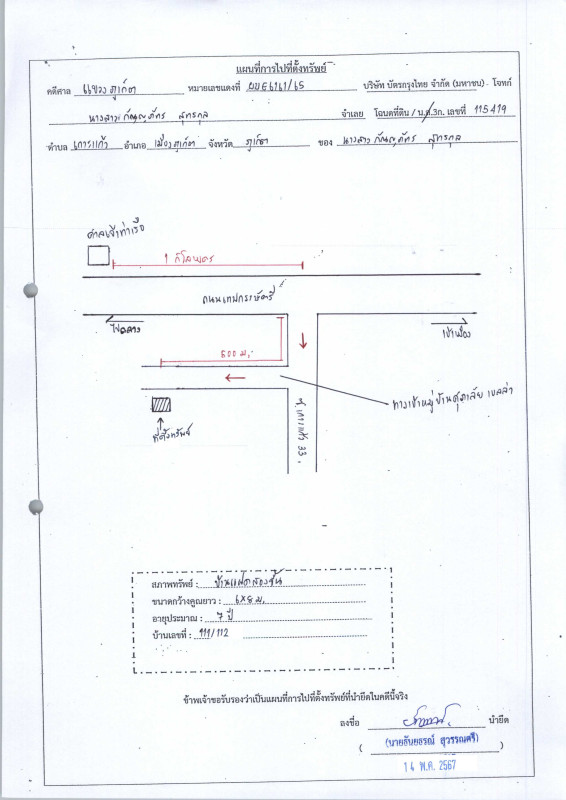 แผนที่การไปที่ตั้งทรัพย์
คดีศาล แขวงภูเก็ต หมายเลขแดงที่ ผบE6161/65 บริษัท บัตรกรุงไทย จำกัด (มหาชน) โจทก์
นางสาวกัญญภัทร สุทรกุล จำเลย โฉนดที่ดิน / น.ส.3ก. เลขที่ 115419
ตำบล เกาะแก้ว อำเภอ เมืองภูเก็ต จังหวัด ภูเก็ต ของ นางสาวกัญญภัทร สุทรกุล
ศาลเจ้าท่าเรือ
1 กิโลเมตร
ถนนเทพกระษัตรี
ไปถลาง
เข้าเมือง
500 ม.
ทางเข้าหมู่บ้านศุภาลัย เบลล่า
ซ.เกาะแก้ว 33
ที่ตั้งทรัพย์
สภาพทรัพย์ : บ้านแฝดสองชั้น
ขนาดกว้างคูณยาว : 6x8 ม.
อายุประมาณ : 7 ปี
บ้านเลขที่ : 111/112
ข้าพเจ้าขอรับรองว่าเป็นแผนที่การไปที่ตั้งทรัพย์ที่นำยึดในคดีนี้จริง
ลงชื่อ นำยึด
(นายธันยธรณ์ สุวรรณศรี)
14 พ.ค. 2567